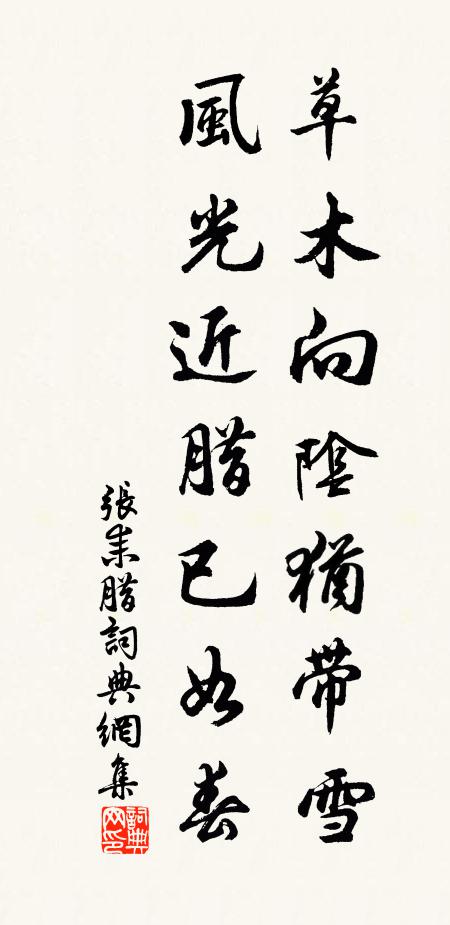 草木向陰猶帶雪
風光近腊已如春
張耒腊詞典網集
詞典網印